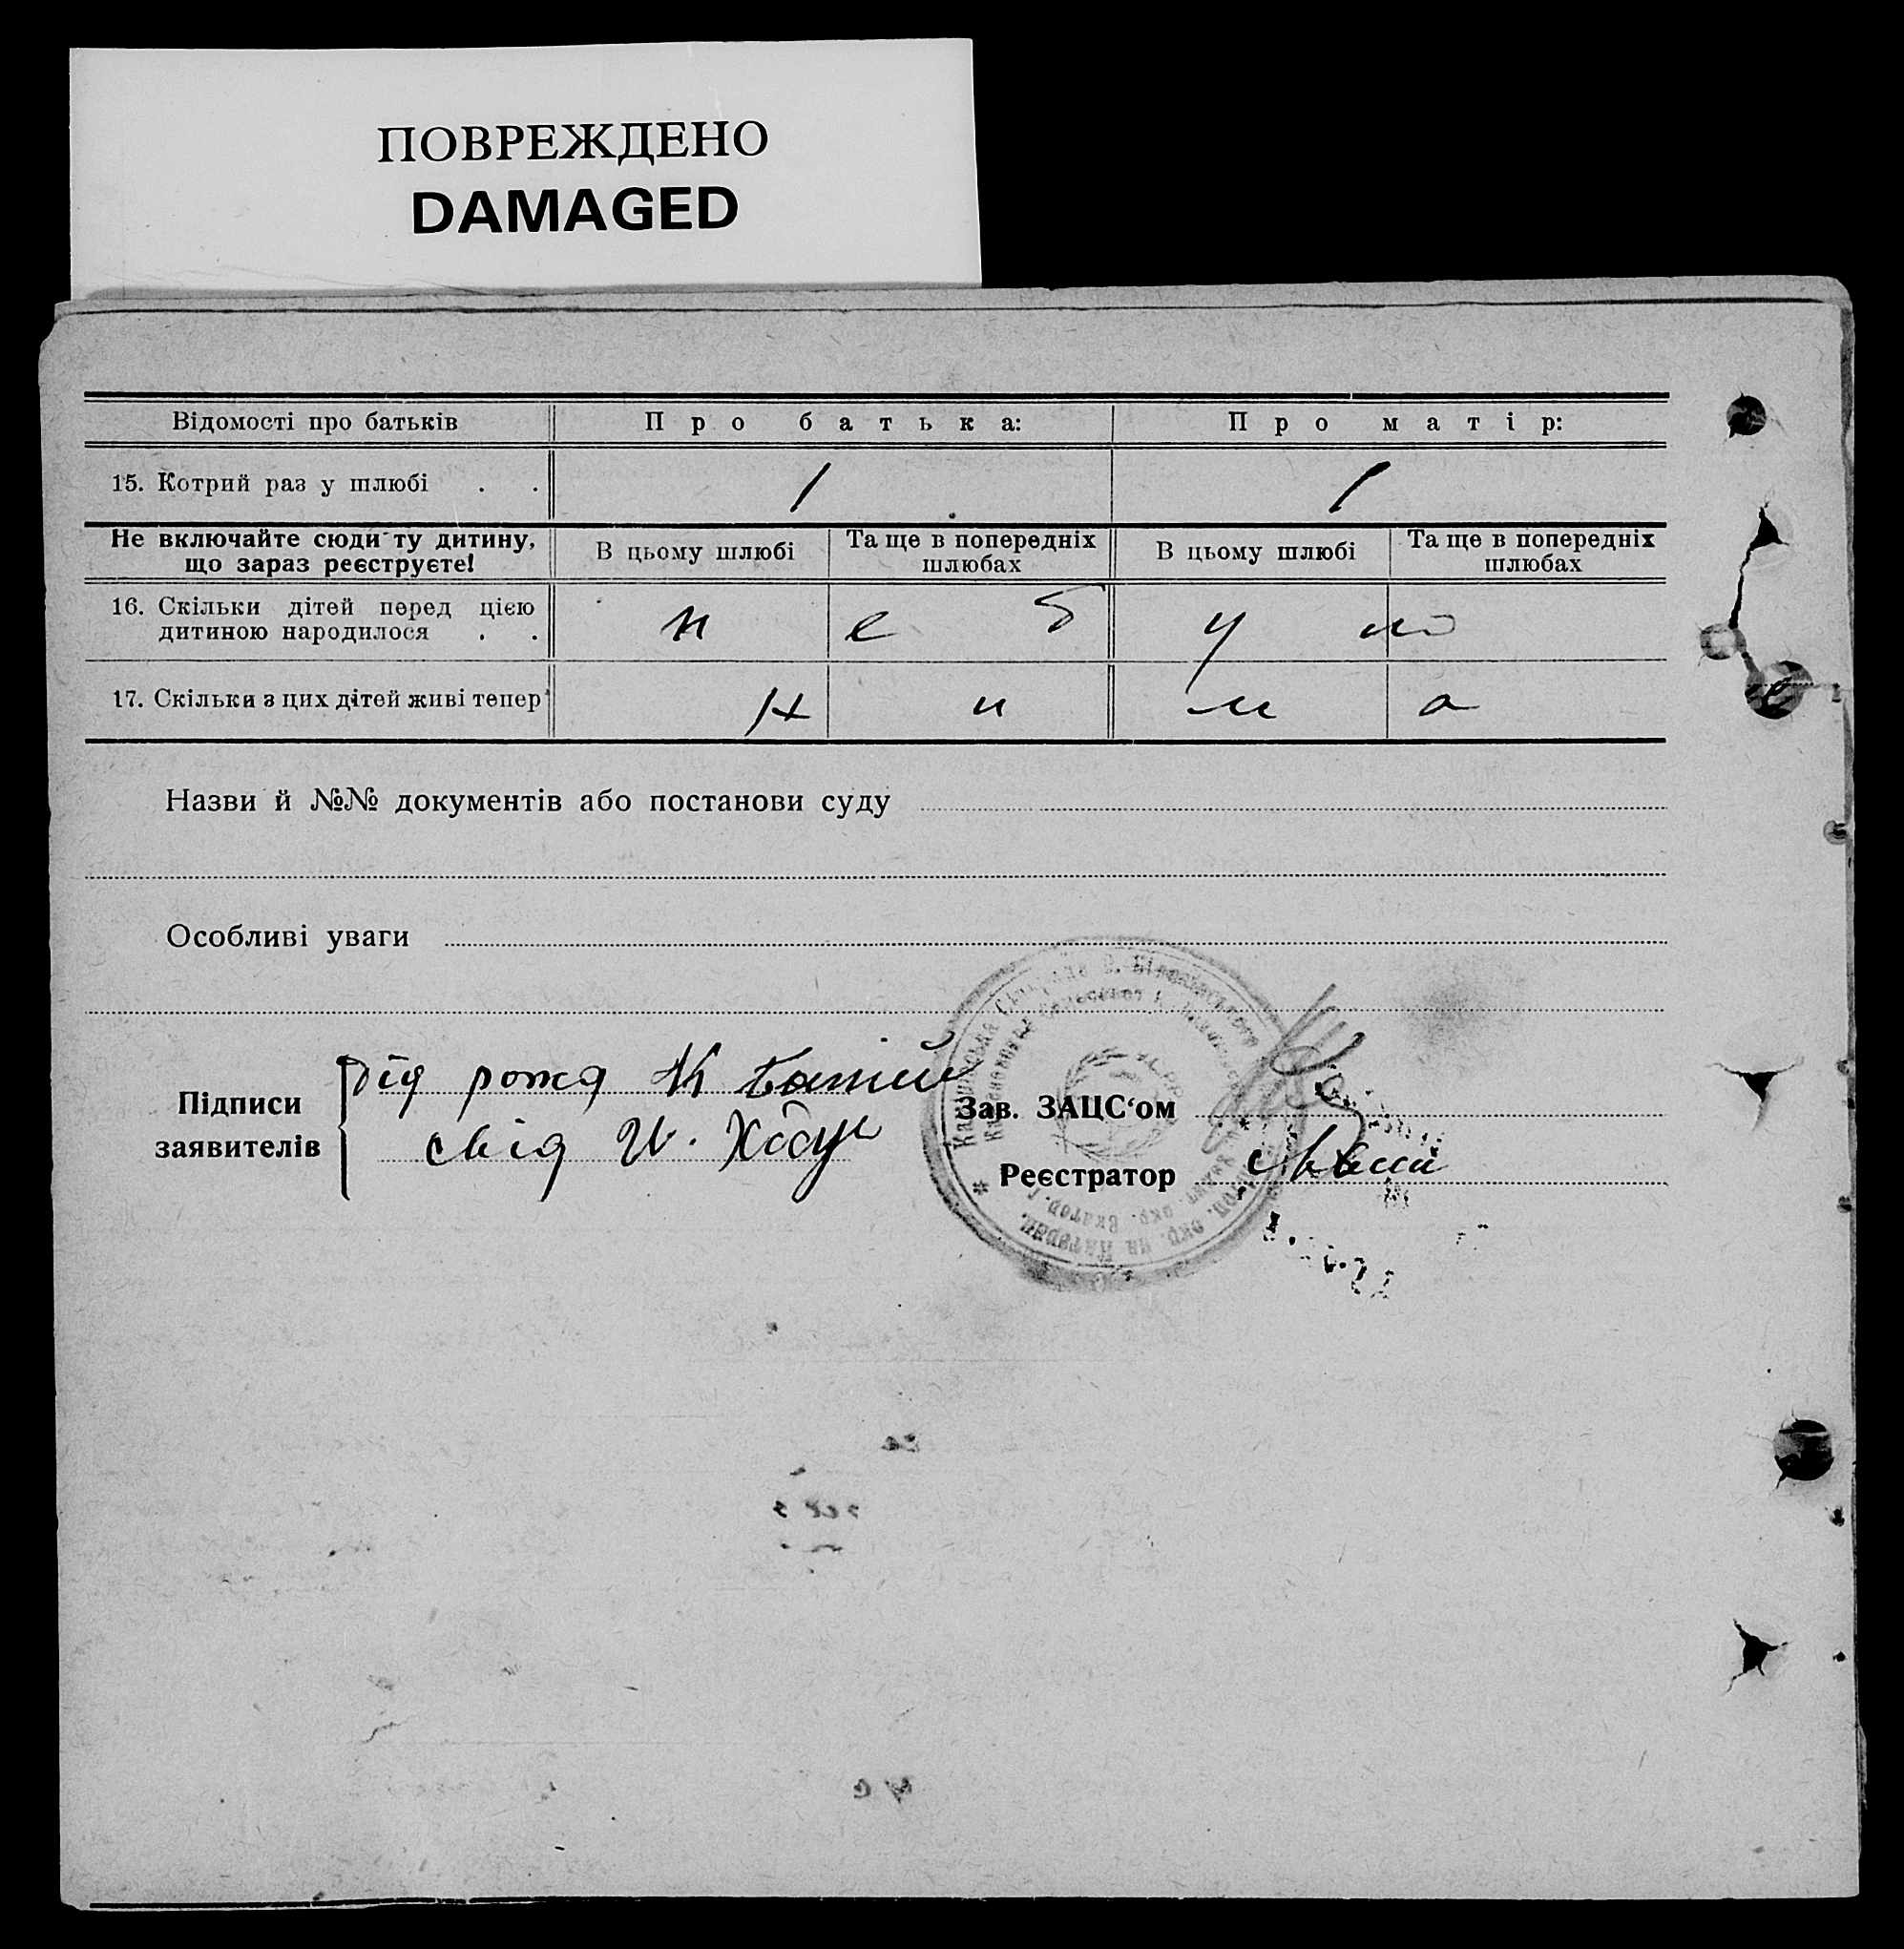 ПОВРЕЖДЕНО
DAMAGED
Відомості про батьків
Про батька:
Про матір:
15. Котрий раз у шлюбі . .
1
1
Не включайте сюди ту дитину,
що зараз реєструєте!
В цьому шлюбі
Та ще в попередніх
шлюбах
В цьому шлюбі
Та ще в попередніх
шлюбах
16. Скільки дітей перед цією
дитиною народилося . .
н е б у ло
17. Скільки з цих дітей живі тепер
н и м а
Назви й №№ документів або постанови суду
Особливі уваги
Підписи
заявителів
від рожд
свід И. Ходун
Зав. ЗАЦС‘ом
Реєстратор